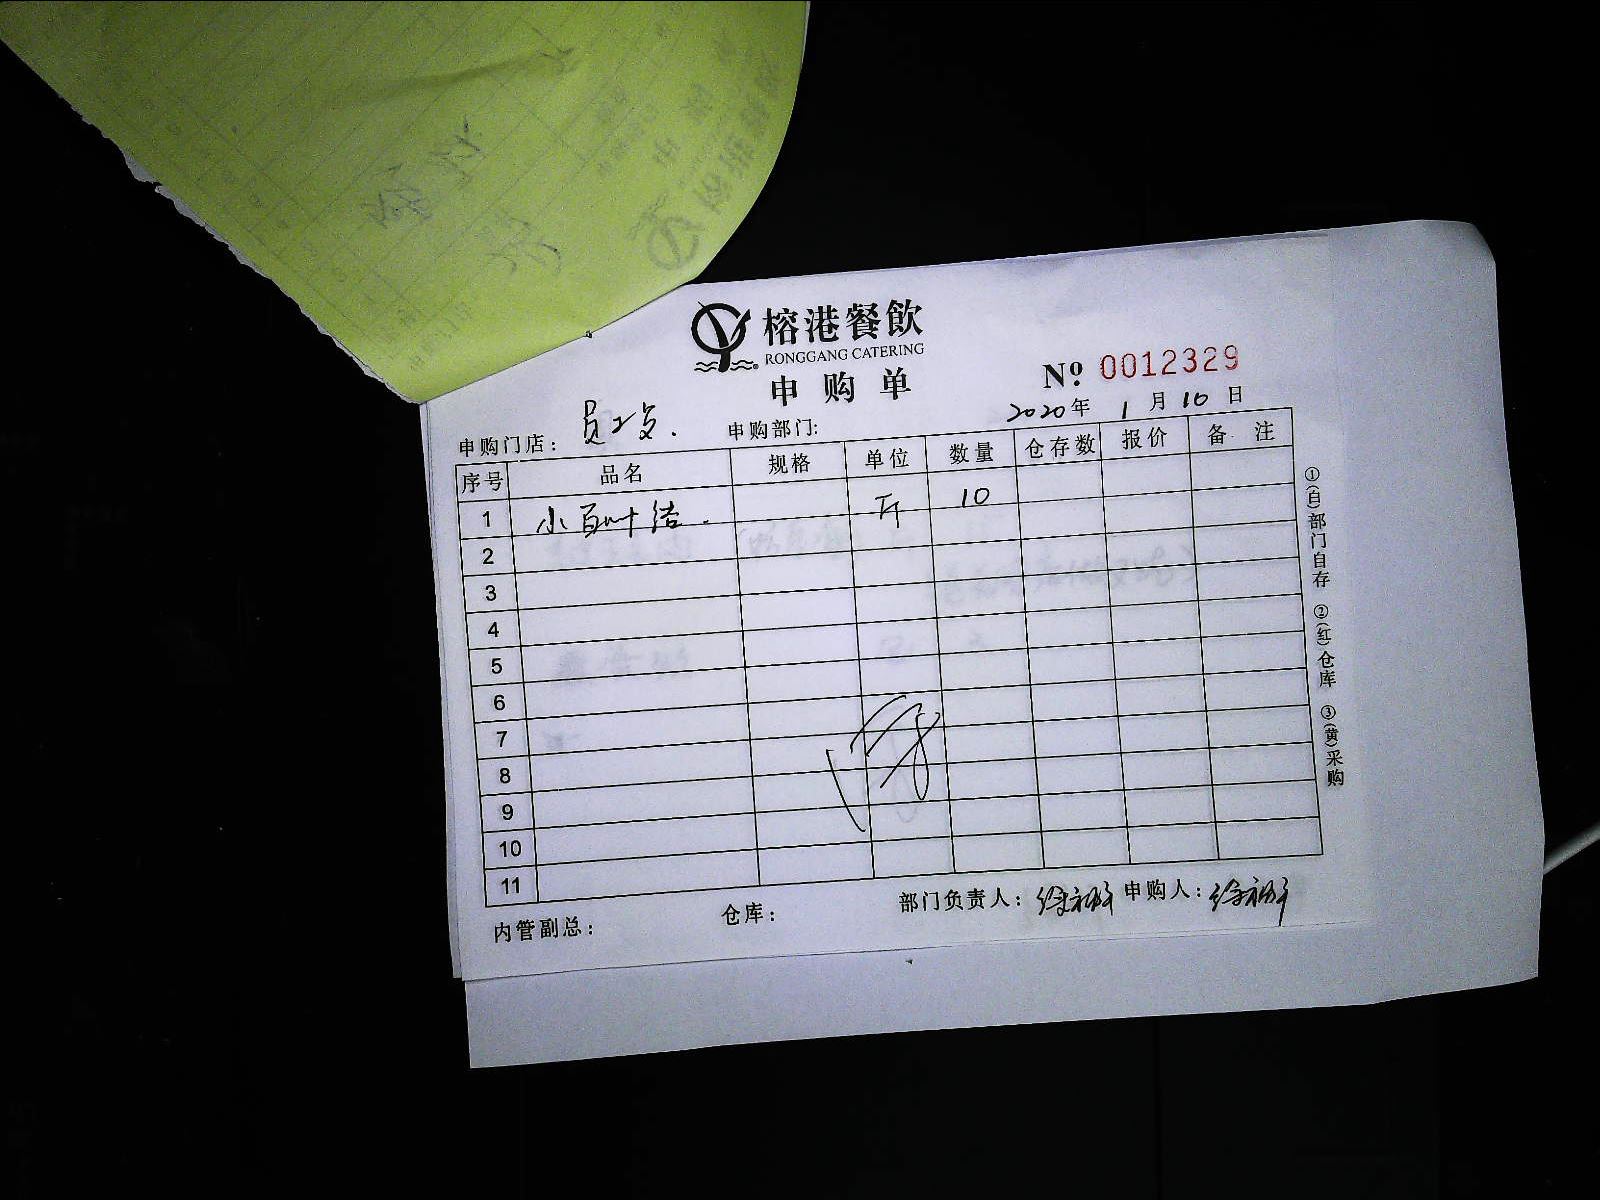 榕港餐飲
RONGGANG CATERING
申购单
№ 0012329
2020年 1月 10日
申购门店： 员工 申购部门:
序号 品名 规格 单位 数量 仓存数 报价 备注
1 小百叶结. 斤 10
2
3
4
5
6
7
8
9
10
11
内管副总： 仓库： 部门负责人： 申购人：
①(白)部门自存 ②(红)仓库 ③(黄)采购